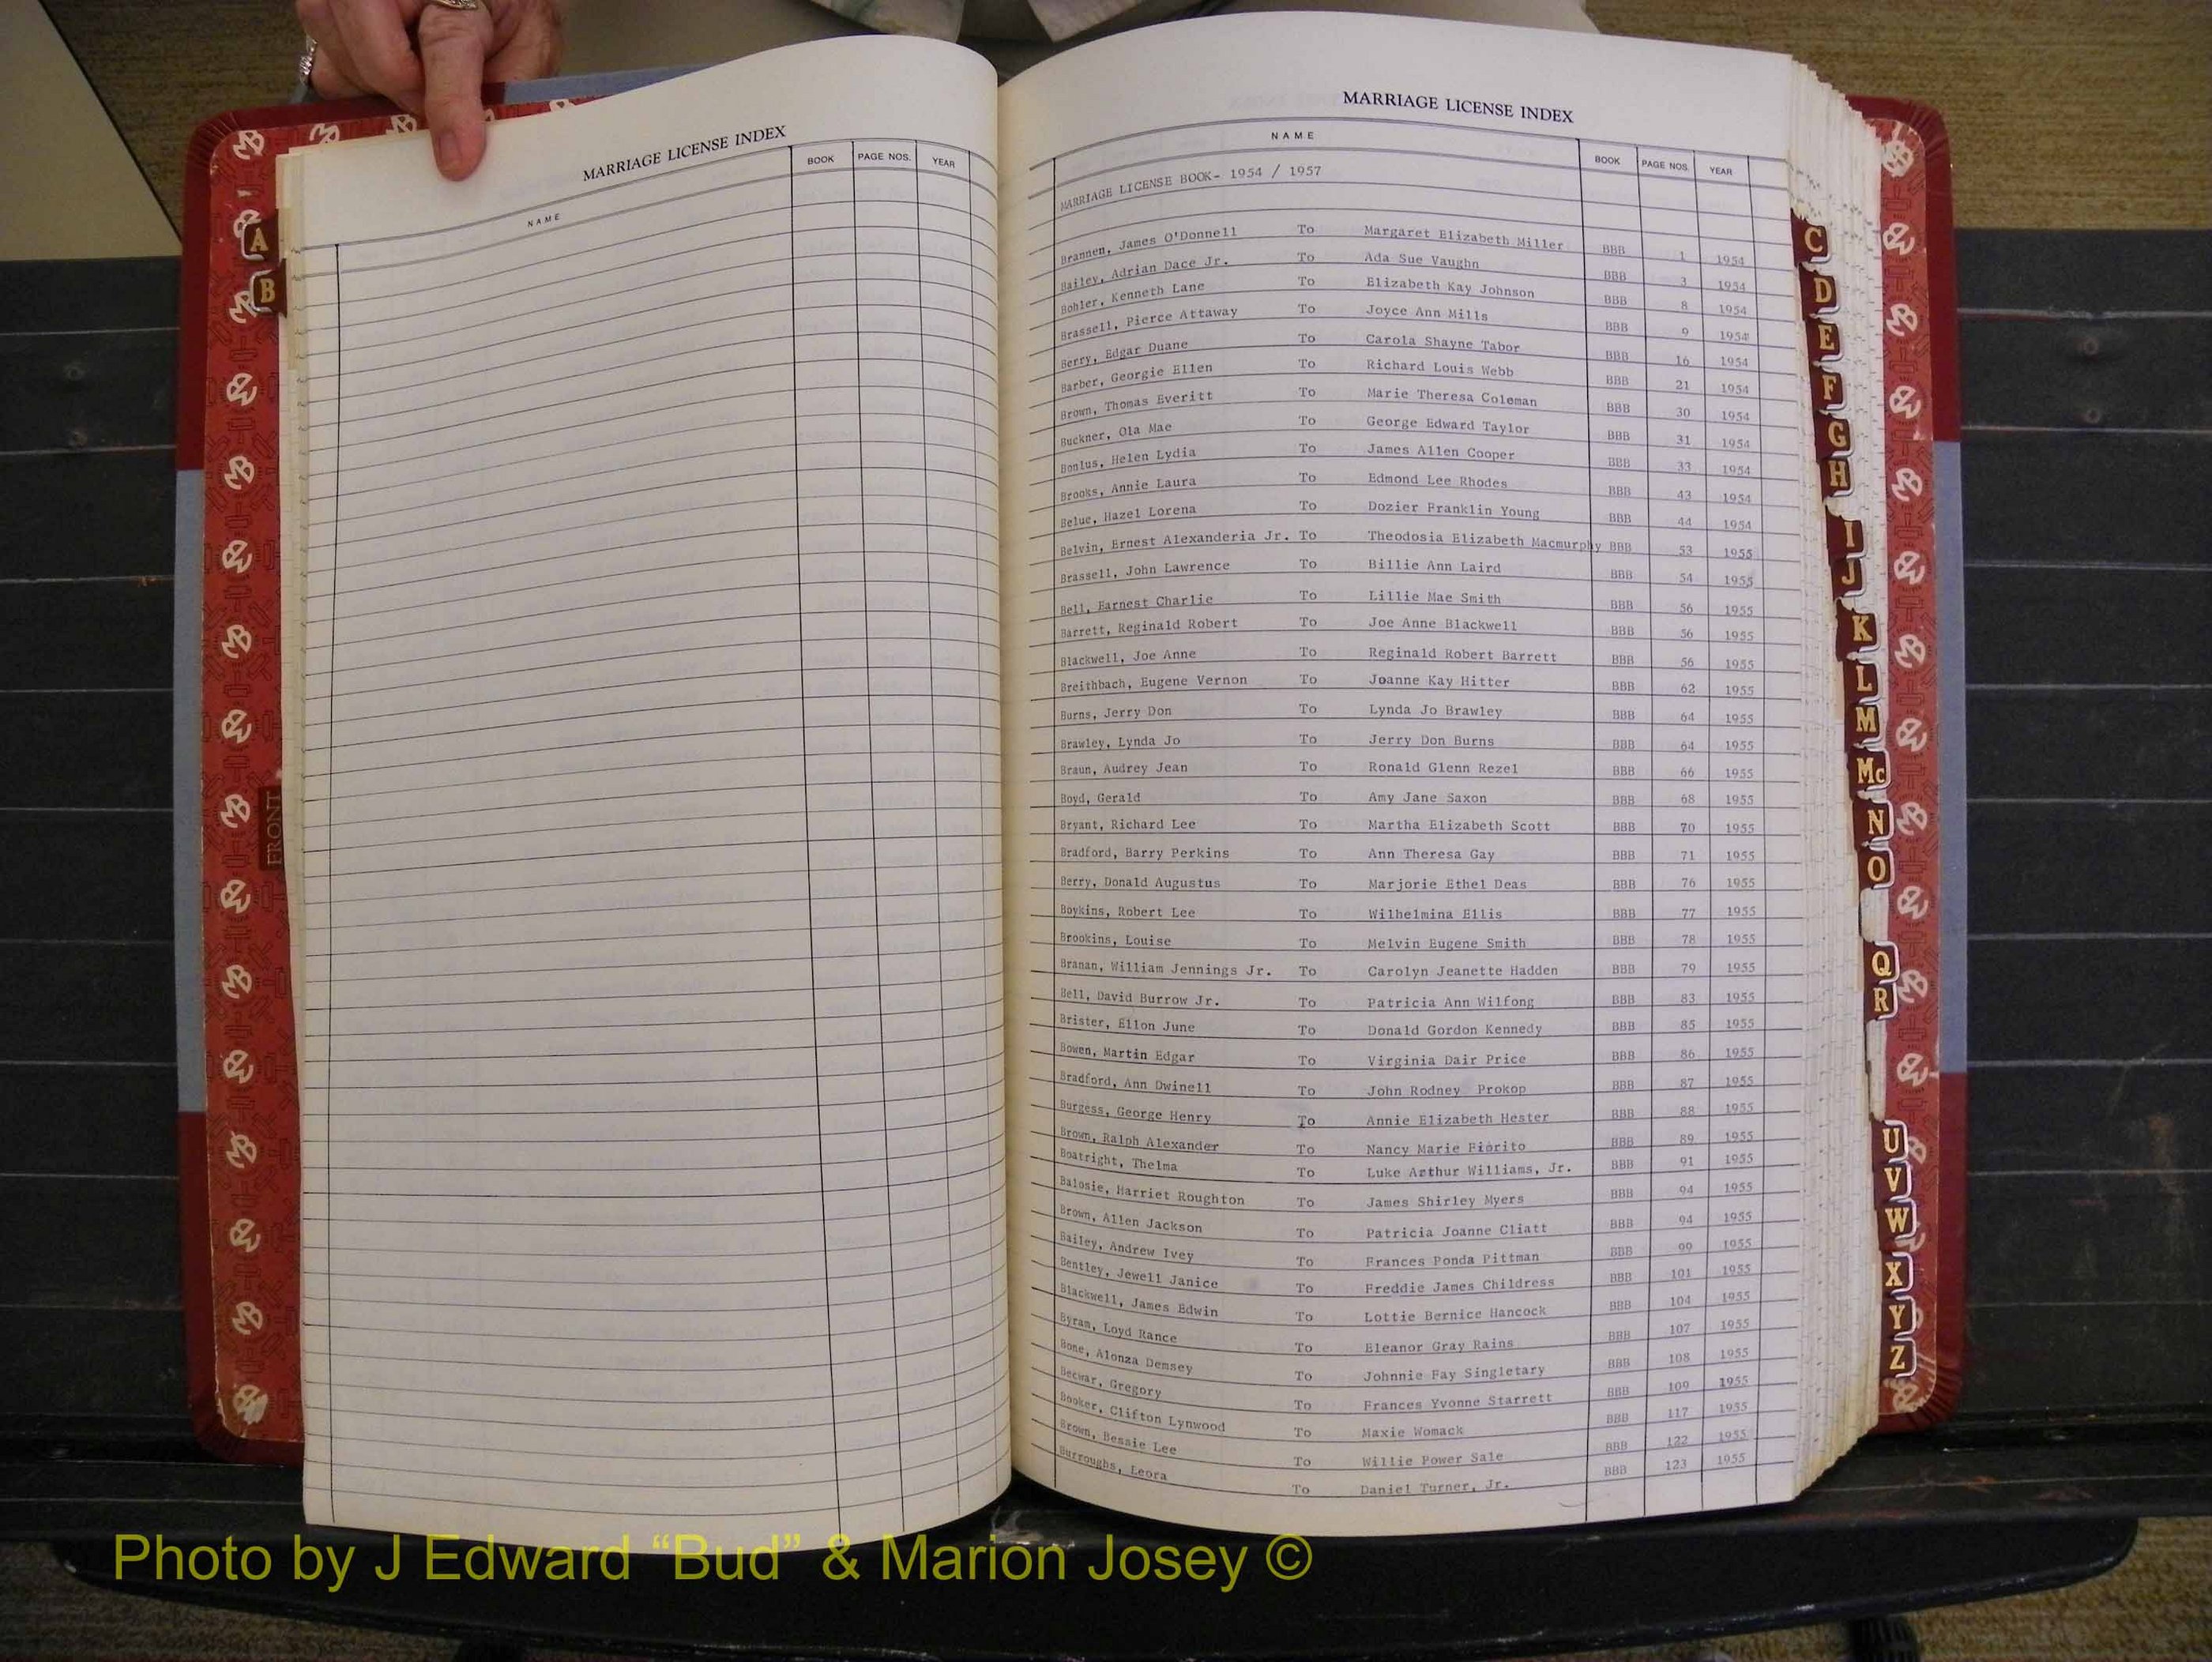 MARRIAGE LICENSE INDEX
NAME BOOK PAGE NOS. YEAR
A
B
FRONT
MARRIAGE LICENSE INDEX
NAME BOOK PAGE NOS. YEAR
MARRIAGE LICENSE BOOK- 1954 / 1957
Brannen, James O'Donnell To Margaret Elizabeth Miller BBB 1 1954
Bailey, Adrian Dace Jr. To Ada Sue Vaughn BBB 3 1954
Bohler, Kenneth Lane To Elizabeth Kay Johnson BBB 8 1954
Brassell, Pierce Attaway To Joyce Ann Mills BBB 9 1954
Berry, Edgar Duane To Carola Shayne Tabor BBB 16 1954
Barber, Georgie Ellen To Richard Louis Webb BBB 21 1954
Brown, Thomas Everitt To Marie Theresa Coleman BBB 30 1954
Buckner, Ola Mae To George Edward Taylor BBB 31 1954
Bonlus, Helen Lydia To James Allen Cooper BBB 33 1954
Brooks, Annie Laura To Edmond Lee Rhodes BBB 43 1954
Belue, Hazel Lorena To Dozier Franklin Young BBB 44 1954
Belvin, Ernest Alexanderia Jr. To Theodosia Elizabeth Macmurphy BBB 53 1955
Brassell, John Lawrence To Billie Ann Laird BBB 54 1955
Bell, Earnest Charlie To Lillie Mae Smith BBB 56 1955
Barrett, Reginald Robert To Joe Anne Blackwell BBB 56 1955
Blackwell, Joe Anne To Reginald Robert Barrett BBB 56 1955
Breithbach, Eugene Vernon To Joanne Kay Hitter BBB 62 1955
Burns, Jerry Don To Lynda Jo Brawley BBB 64 1955
Brawley, Lynda Jo To Jerry Don Burns BBB 64 1955
Braun, Audrey Jean To Ronald Glenn Rezel BBB 66 1955
Boyd, Gerald To Amy Jane Saxon BBB 68 1955
Bryant, Richard Lee To Martha Elizabeth Scott BBB 70 1955
Bradford, Barry Perkins To Ann Theresa Gay BBB 71 1955
Berry, Donald Augustus To Marjorie Ethel Deas BBB 76 1955
Boykins, Robert Lee To Wilhelmina Ellis BBB 77 1955
Brookins, Louise To Melvin Eugene Smith BBB 78 1955
Branan, William Jennings Jr. To Carolyn Jeanette Hadden BBB 79 1955
Bell, David Burrow Jr. To Patricia Ann Wilfong BBB 83 1955
Brister, Ellon June To Donald Gordon Kennedy BBB 85 1955
Bowen, Martin Edgar To Virginia Dair Price BBB 86 1955
Bradford, Ann Dwinell To John Rodney Prokop BBB 87 1955
Burgess, George Henry To Annie Elizabeth Hester BBB 88 1955
Brown, Ralph Alexander To Nancy Marie Fiorito BBB 89 1955
Boatright, Thelma To Luke Arthur Williams, Jr. BBB 91 1955
Balosie, Harriet Roughton To James Shirley Myers BBB 94 1955
Brown, Allen Jackson To Patricia Joanne Cliatt BBB 94 1955
Bailey, Andrew Ivey To Frances Ponda Pittman BBB 99 1955
Bentley, Jewell Janice To Freddie James Childress BBB 101 1955
Blackwell, James Edwin To Lottie Bernice Hancock BBB 104 1955
Byram, Loyd Rance To Eleanor Gray Rains BBB 107 1955
Bone, Alonza Demsey To Johnnie Fay Singletary BBB 108 1955
Becwar, Gregory To Frances Yvonne Starrett BBB 109 1955
Booker, Clifton Lynwood To Maxie Womack BBB 117 1955
Brown, Bessie Lee To Willie Power Sale BBB 122 1955
Burroughs, Leora To Daniel Turner, Jr. BBB 123 1955
C
D
E
F
G
H
I
J
K
L
M
Mc
N
O
Q
R
U
V
W
X
Y
Z
Photo by J Edward “Bud” & Marion Josey ©